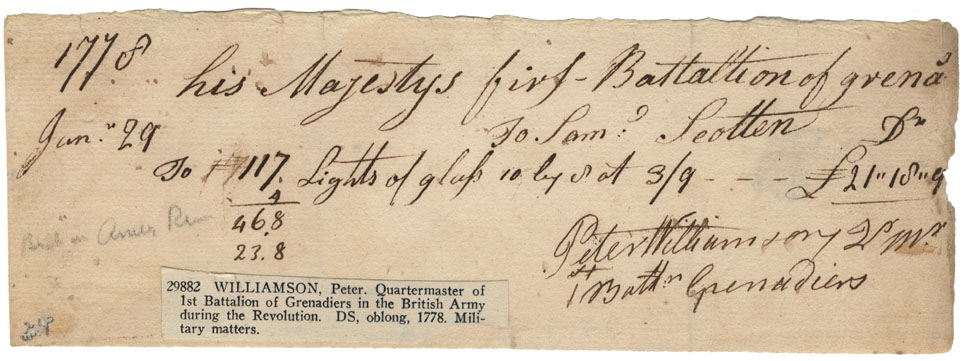 1778
his Majestys first Battaltion of grenaˢ
Janʳ 29
To Samˡ Scotten Dʳ
To 117 Lights of glass 10 by 8 at 3/9 - - - £21"18"9
4
46.8
23.8
Peter Williamson Qʳ Mʳ
1ˢᵗ Battⁿ Grenadiers
29882 WILLIAMSON, Peter. Quartermaster of
1st Battalion of Grenadiers in the British Army
during the Revolution. DS, oblong, 1778. Mili-
tary matters.